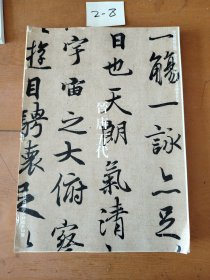 2-8
一觴一詠亦足
日也天朗氣清
宇宙之大俯察
遊目騁懷足